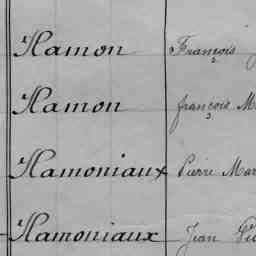 Hamon François
Hamon françois M
Hamoniaux Pierre Mar
Hamoniaux Jean